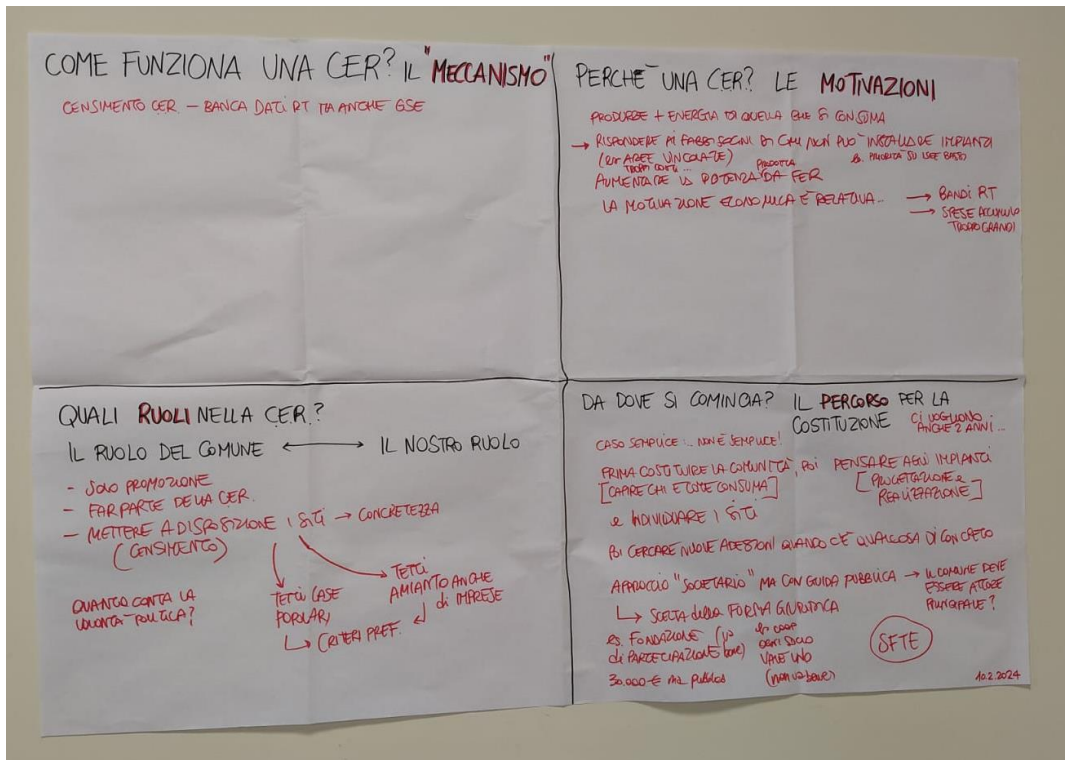 COME FUNZIONA UNA CER? IL "MECCANISMO"
CENSIMENTO CER – BANCA DATI RT MA ANCHE GSE
PERCHÉ UNA CER? LE MOTIVAZIONI
PRODURRE + ENERGIA DI QUELLA CHE SI CONSUMA
→ RISPONDERE AI FABBISOGNI DI CHI NON PUÒ INSTALLARE IMPIANTI
(es AREE VINCOLATE) es. PRIORITÀ SU ISEE BASSO
TROPPI COSTI...
PRODOTTA
AUMENTARE LA POTENZA DA FER
LA MOTIVAZIONE ECONOMICA È RELATIVA.. → BANDI RT
→ SPESE ACCUMULO
TROPPO GRANDI
QUALI RUOLI NELLA CER?
IL RUOLO DEL COMUNE ⟷ IL NOSTRO RUOLO
- SOLO PROMOZIONE
- FAR PARTE DELLA CER.
- METTERE A DISPOSIZIONE I SITI → CONCRETEZZA
(CENSIMENTO)
QUANTO CONTA LA
VOLONTÀ POLITICA?
TETTI CASE
POPOLARI
↳ CRITERI PREF.
TETTI
AMIANTO ANCHE
di IMPRESE
DA DOVE SI COMINCIA? IL PERCORSO PER LA
COSTITUZIONE
CI VOGLIONO
ANCHE 2 ANNI...
CASO SEMPLICE... NON È SEMPLICE!
PRIMA COSTITUIRE LA COMUNITÀ, POI PENSARE AGLI IMPIANTI
[CAPIRE CHI E COME CONSUMA] [PROGETTAZIONE e
REALIZZAZIONE]
e INDIVIDUARE I SITI
POI CERCARE NUOVE ADESIONI QUANDO C'È QUALCOSA DI CONCRETO
APPROCCIO "SOCIETARIO" MA CON GUIDA PUBBLICA → IL COMUNE DEVE
ESSERE ATTORE
PRINCIPALE?
↳ SCELTA della FORMA GIURIDICA
es. FONDAZIONE (va
di PARTECIPAZIONE bene)
30.000 € ma pubblica
COOP
OGNI SOCIO
VALE UNO
(non va bene)
SFTE
10.2.2024